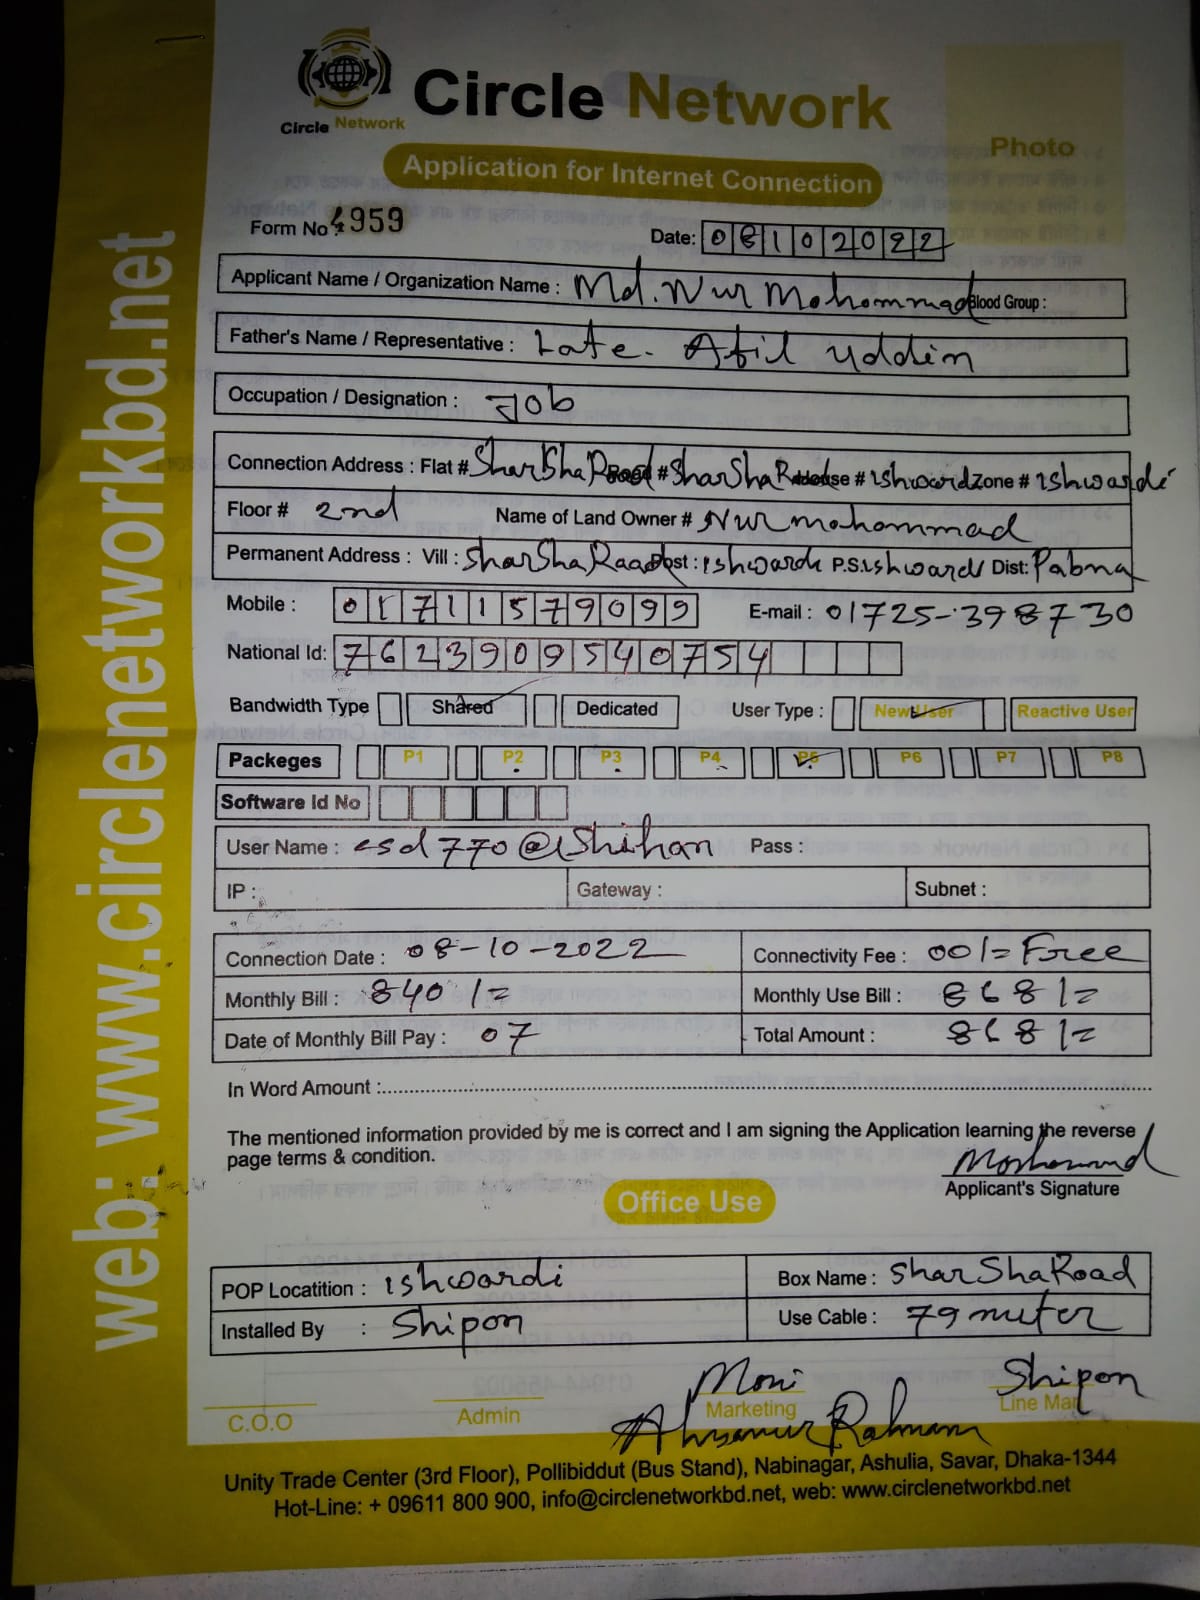 web: www.circlenetworkbd.net
Circle Network
Circle Network
Photo
Application for Internet Connection
Form No: 4959
Date: 08102022
Applicant Name / Organization Name : Md. Nur Mohommad Blood Group :
Father's Name / Representative : Late. Afil uddin
Occupation / Designation : Job
Connection Address : Flat # SharShaRoad # SharShaRoad House # Ishwardi Zone # Ishwardi
Floor # 2nd Name of Land Owner # Nur mohommad
Permanent Address : Vill : SharShaRoad Post : Ishwardi P.S. Ishwardi Dist: Pabna
Mobile : 01711579099 E-mail : 01725-398730
National Id: 7623909540754
Bandwidth Type Shared Dedicated User Type : New User Reactive User
Packeges P1 P2 P3 P4 P5 P6 P7 P8
Software Id No
User Name : esd770@Shihan Pass :
IP : Gateway : Subnet :
Connection Date : 08-10-2022 Connectivity Fee : 00/= Free
Monthly Bill : 840/= Monthly Use Bill : 868/=
Date of Monthly Bill Pay : 07 Total Amount : 868/=
In Word Amount :
The mentioned information provided by me is correct and I am signing the Application learning the reverse
page terms & condition.
Applicant's Signature
Office Use
POP Locatition : Ishwardi Box Name : SharShaRoad
Installed By : Shipon Use Cable : 79 meter
Moni Shipon
C.O.O Admin Marketing Line Man
Ahsanur Rahman
Unity Trade Center (3rd Floor), Pollibiddut (Bus Stand), Nabinagar, Ashulia, Savar, Dhaka-1344
Hot-Line: + 09611 800 900, info@circlenetworkbd.net, web: www.circlenetworkbd.net